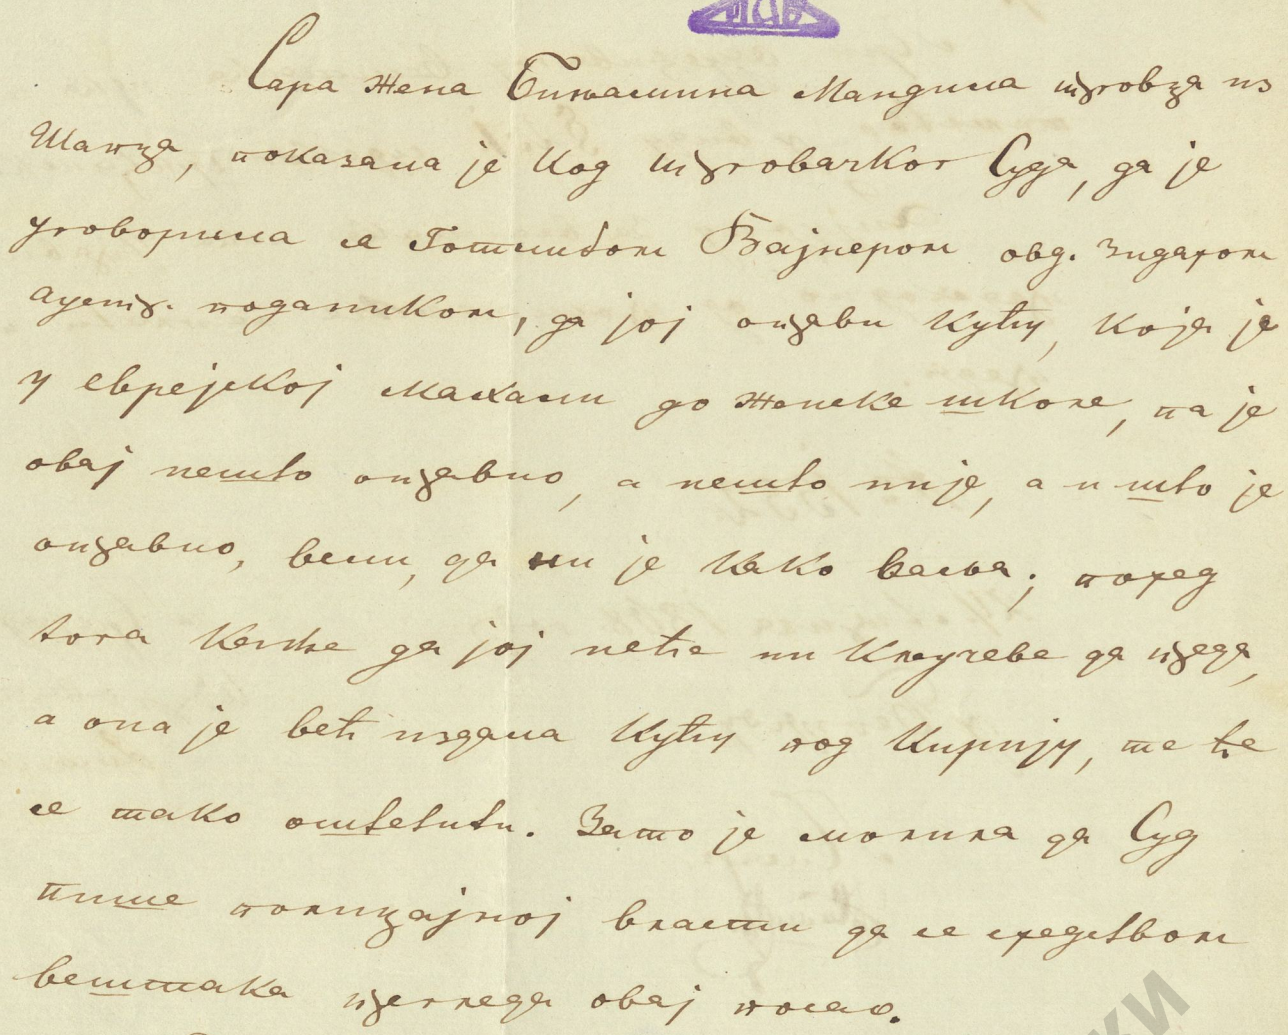 Сара жена Бињамина Мандила трговца из
Шапца, показала је код трговачког Суда, да је
уговорила са Готлибом Вајнером овд. зидаром
аустр. подаником, да јој оправи кућу, која је
у еврејској махали до женске школе, па је
овај нешто оправио, а нешто није, а и што је
оправио, вели, да ни је како ваља; поред
тога каже да јој неће ни кључеве да преда,
а она је већ издала кућу под кирију, те ће
се тако оштетити. Зато је молила да Суд
пише полицајној власти да се средством
вештака прегледа овај посао.
КИ